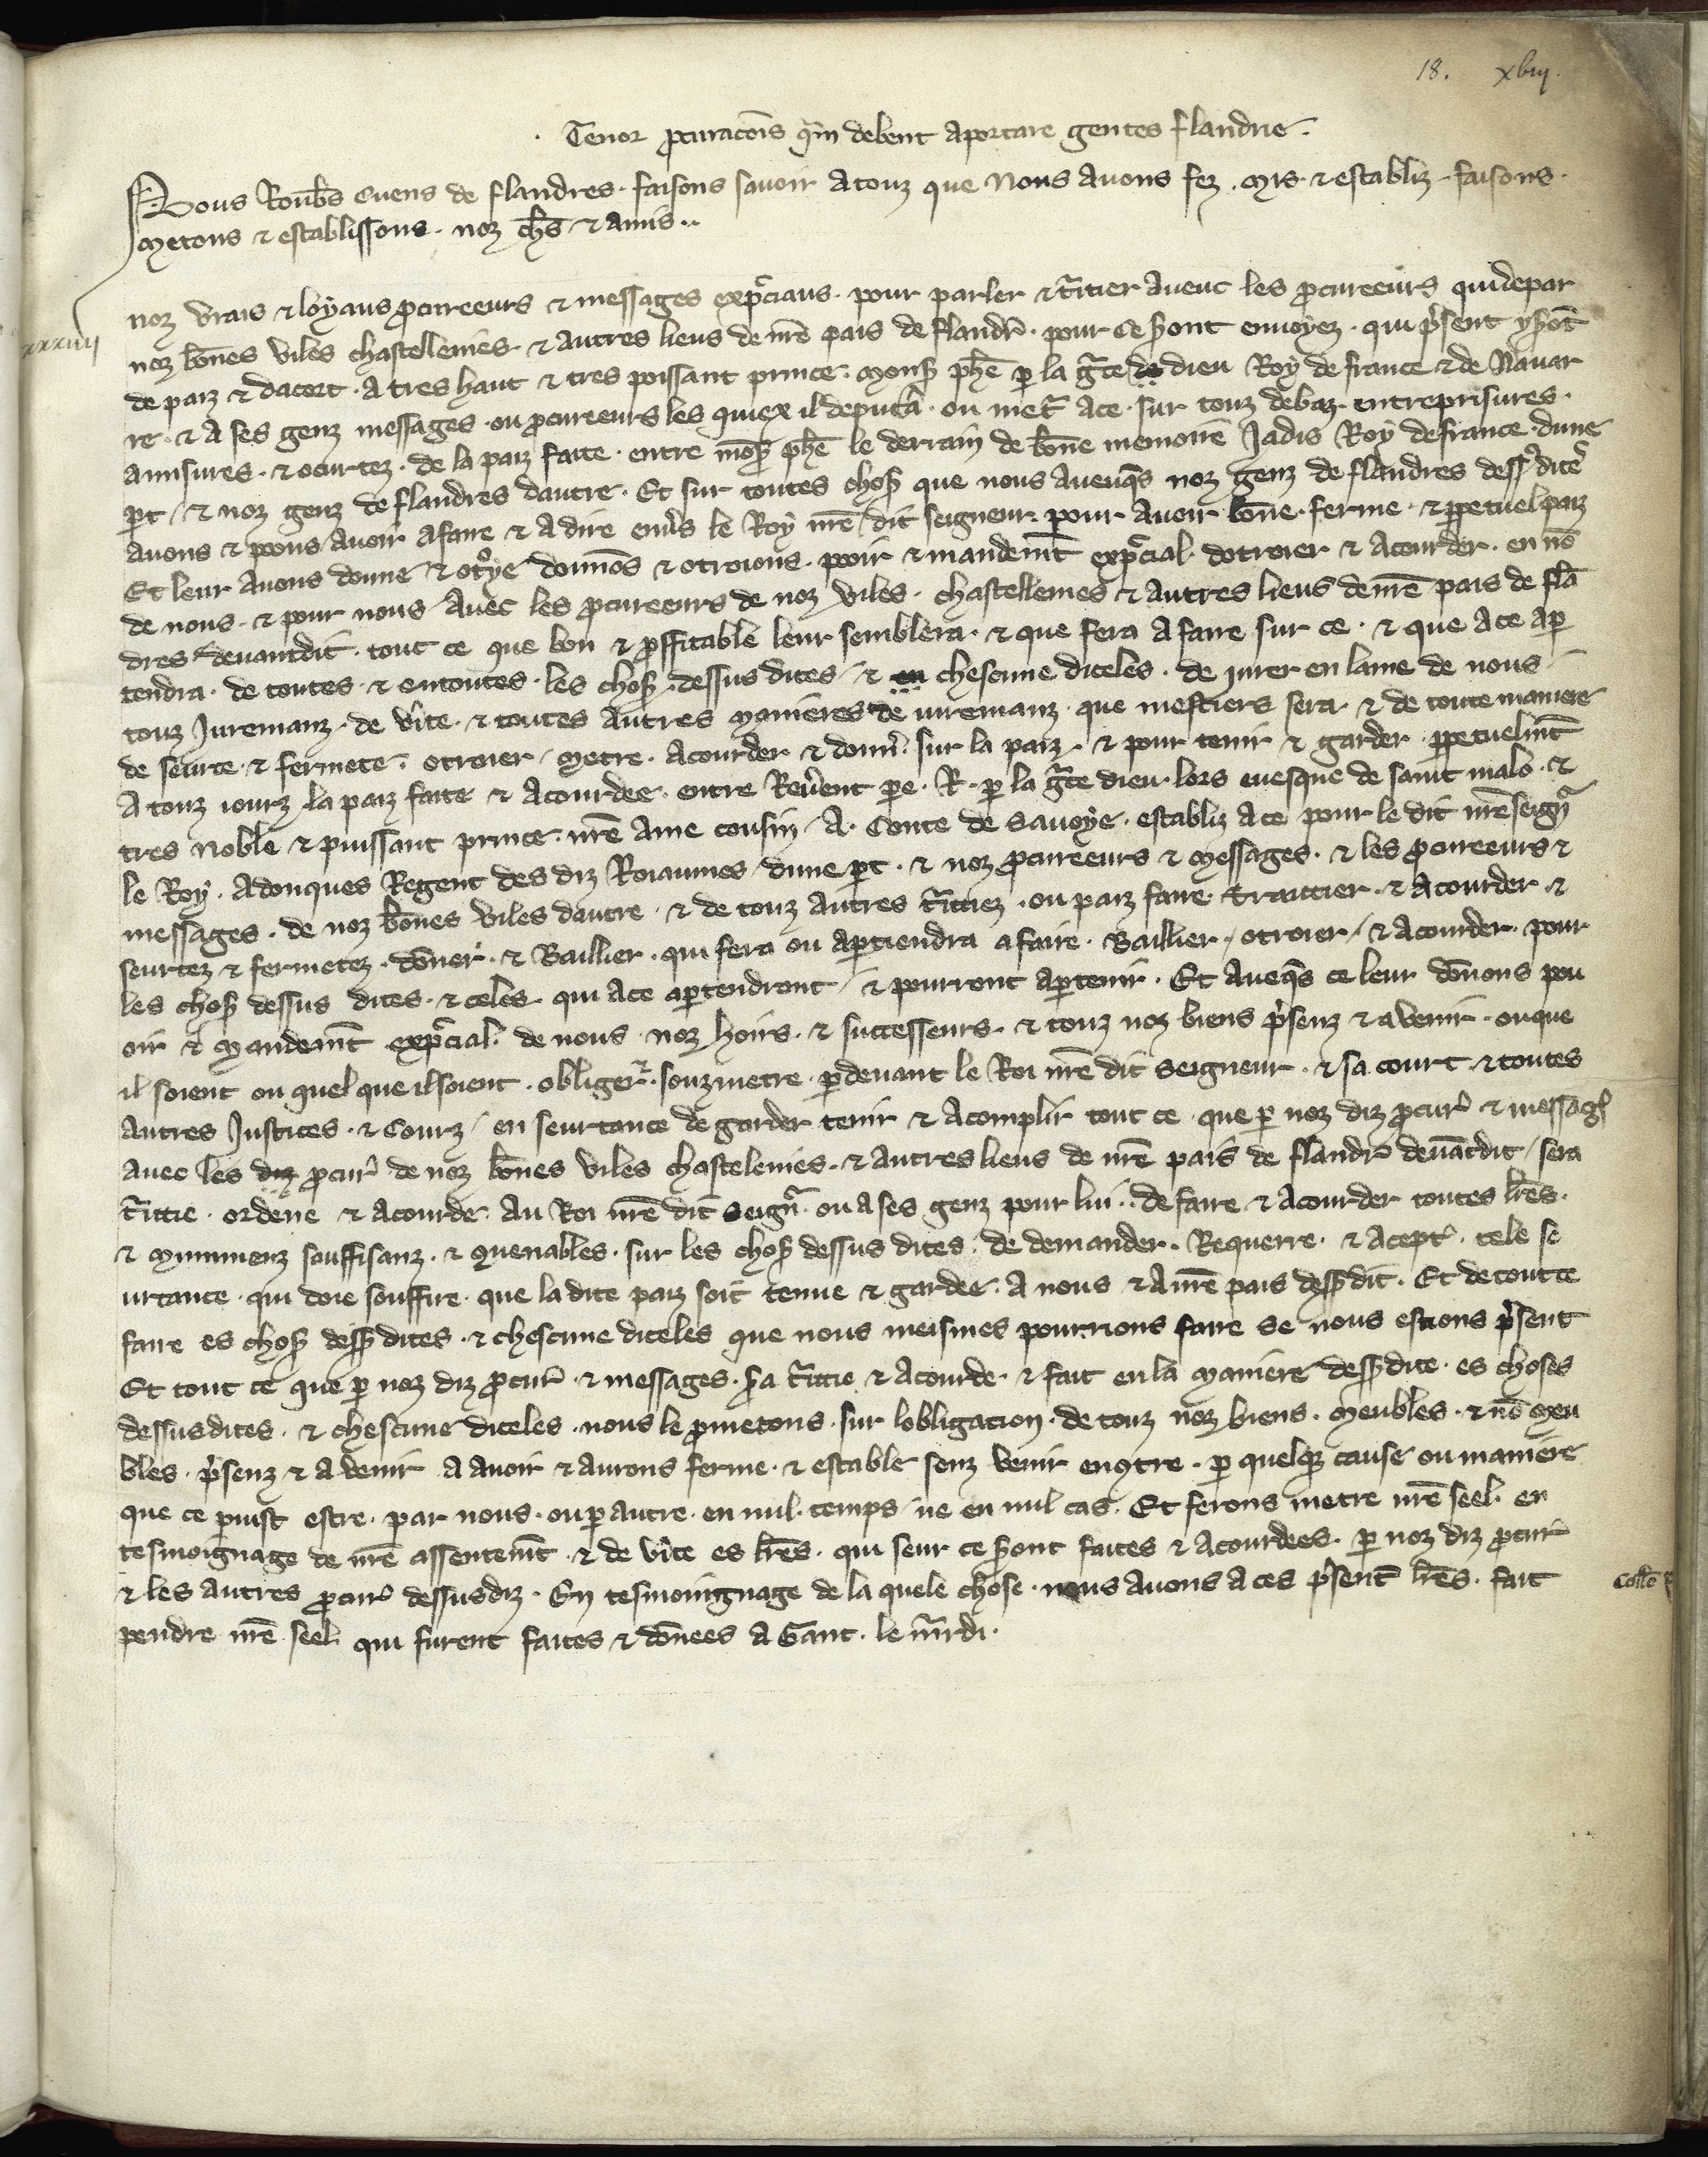 18. xviij.
Tenor ꝓcuracōis qͣm debent aportare gentes flandrie.
Nous Roub̄s Cuens de flandres · faisons savoir a touz que Nous avons fez · mis · ⁊ establiz · faisons ·
metons ⁊ establissons · noz ch̄s ⁊ amis ··
xxxiiij
noz vrais ⁊ loyaus ꝓcureeurs ⁊ messages exp̄ciaus · pour parler ⁊ tͣitier aveuc les ꝓcureeurs qui de par
noz bōnes viles chastellenies · ⁊ autres lieus de nr̄e pais de flandr̄ · pour ce ẜont envoyez · qui p̄sent yẜōt
de paiz ⁊ dacort · a tres haut ⁊ tres poissant prince · monẜ ph̄e ꝑ la gͣce de dieu Roy de france ⁊ de Navar
re · ⁊ a ses genz messages · ou ꝓcureeurs les quiex il deputͣa · ou metͣ a ce · sur touz debaz · entreprisures ·
amisures · ⁊ ocurtez · de la paiz faite · entre mōẜ ph̄e le derrain de bōne memoire Jadis Roy de france · dune
ꝑt / ⁊ noz genz de flandres dautre · Et sur toutes choẜ que nous aveuq̄s noz genz de flandres desẜ dite
avons ⁊ poons avoir a faire ⁊ a dire env̄s le Roy nr̄e dit seigneur · pour avoir bōne · ferme · ⁊ ꝑpetuel paiz
Et leur avons donne ⁊ otroye donnōs ⁊ otroions · pooir ⁊ mandem̄t exp̄cial · dotroier ⁊ acourder · en nō
de nous · ⁊ pour nous avec les ꝓcureeurs de noz viles · chastellenies ⁊ autres lieus de nr̄e pais de flā
dres devantdit · tout ce que bon ⁊ ꝓffitable leur semblera · ⁊ que sera a faire sur ce · ⁊ que a ce aꝑ
tendra · de toutes · ⁊ en toutes · les choẜ · dessus dites / ⁊ en chescune diceles · de jurer en lame de nous ·
touz Juremanz · de v̄ite · ⁊ toutes autres manieres de juremanz · que mestiers sera · ⁊ de toute maniere
de seurte · ⁊ fermete · otroier / metre · acourder ⁊ donn̄ · sur la paiz · ⁊ pour tenir ⁊ garder · ꝑpetuelm̄t
a touz jourz · la paiz faite ⁊ acourdee · entre Rev̄ent ꝑe · R · ꝑ la gͣce dieu · lors evesque de saint malo · ⁊
tres noble ⁊ puissant prince · nr̄e ame cousin / A · Conte de savoye · establiz a ce pour le dit nr̄e seignͬ
le Roy · adonques Regent des diz Roiaumes / dune ꝑt · ⁊ noz ꝓcureeurs ⁊ messages · ⁊ les ꝓcureeurs ⁊
messages · de noz bōnes viles dautre · ⁊ de touz autres tͣitiez · ou paiz faire · traittier · ⁊ acourder · ⁊
seurtez ⁊ fermetez · dōner · ⁊ Baillier · qui sera ou aꝑtiendra a faire · Baillier / otroier / ⁊ acourder · pour
les choẜ dessus dites · ⁊ celes · qui a ce aꝑtendront / ⁊ pourront aꝑtenir · Et aveq̄s ce leur dōnons pou
oir ⁊ mandem̄t exp̄cial · de nous · noz hoirs · ⁊ successeurs · ⁊ touz noz biens p̄senz ⁊ a venir · ou que
il soient ou quel que il soient · obliger ⁊ · souzmetre · ꝑ devant le Roi nr̄e dit seigneur · ⁊ sa court · ⁊ toutes
autres Justices · ⁊ Courz / en seurtance de garder tenir ⁊ acomplir tout ce · que ꝑ noz diz ꝓcur̄ ⁊ messagẜ
avec les diz ꝓcur̄ de noz bōnes viles chastelenies · ⁊ autres lieus de nr̄e pais de flandr̄ devāt dit / sera
tͣitie · ordene ⁊ acourde · au Roi nr̄e dit seignͬ · ou a ses genz pour lui ·· de faire ⁊ acourder toutes lr̄es ·
⁊ munimenz souffisanz · ⁊ ꝯvenables · sur les choẜ dessus dites · de demander · Requerre · ⁊ acept̄ · tele se
urtance · qui doie souffire · que la dite paiz soit tenue ⁊ gardee · a nous ⁊ a nr̄e pais desẜdit · Et de tout ce
faire es choẜ desẜ dites · ⁊ chescune diceles que nous meismes pourrions faire se nous estions p̄sent
Et tout ce que ꝑ noz diz ꝓcur̄ · ⁊ messages · ẜa tͣitie ⁊ acourde · ⁊ fait en la maniere desẜdite · es choses
dessusdites · ⁊ chescune diceles · nous le ꝓmetons · sur lobligacion · de touz noz biens · meubles · ⁊ nō meu
bles · p̄senz ⁊ a venir a avoir ⁊ aurons ferme · ⁊ estable senz venir enꝯtre · ꝑ quelqȝ cause ou maniere
que ce puist estre · par nous · ou ꝑ autre · en nul · temps / ne en nul cas · Et ferons metre nr̄e seel · en
tesmoignage de nr̄e assentem̄t · ⁊ de v̄ite es lr̄es · qui seur ce ẜont faites ⁊ acourdees · ꝑ noz diz ꝓcur̄
⁊ les autres ꝓcur̄ dessusdiz · En tesmoingnage de la quele chose · nous avons a ces p̄sent̄ lr̄es · fait
Coll̄o
pendre nr̄e seel · qui furent faites ⁊ dōnees a Gant · le m̄rdi ·